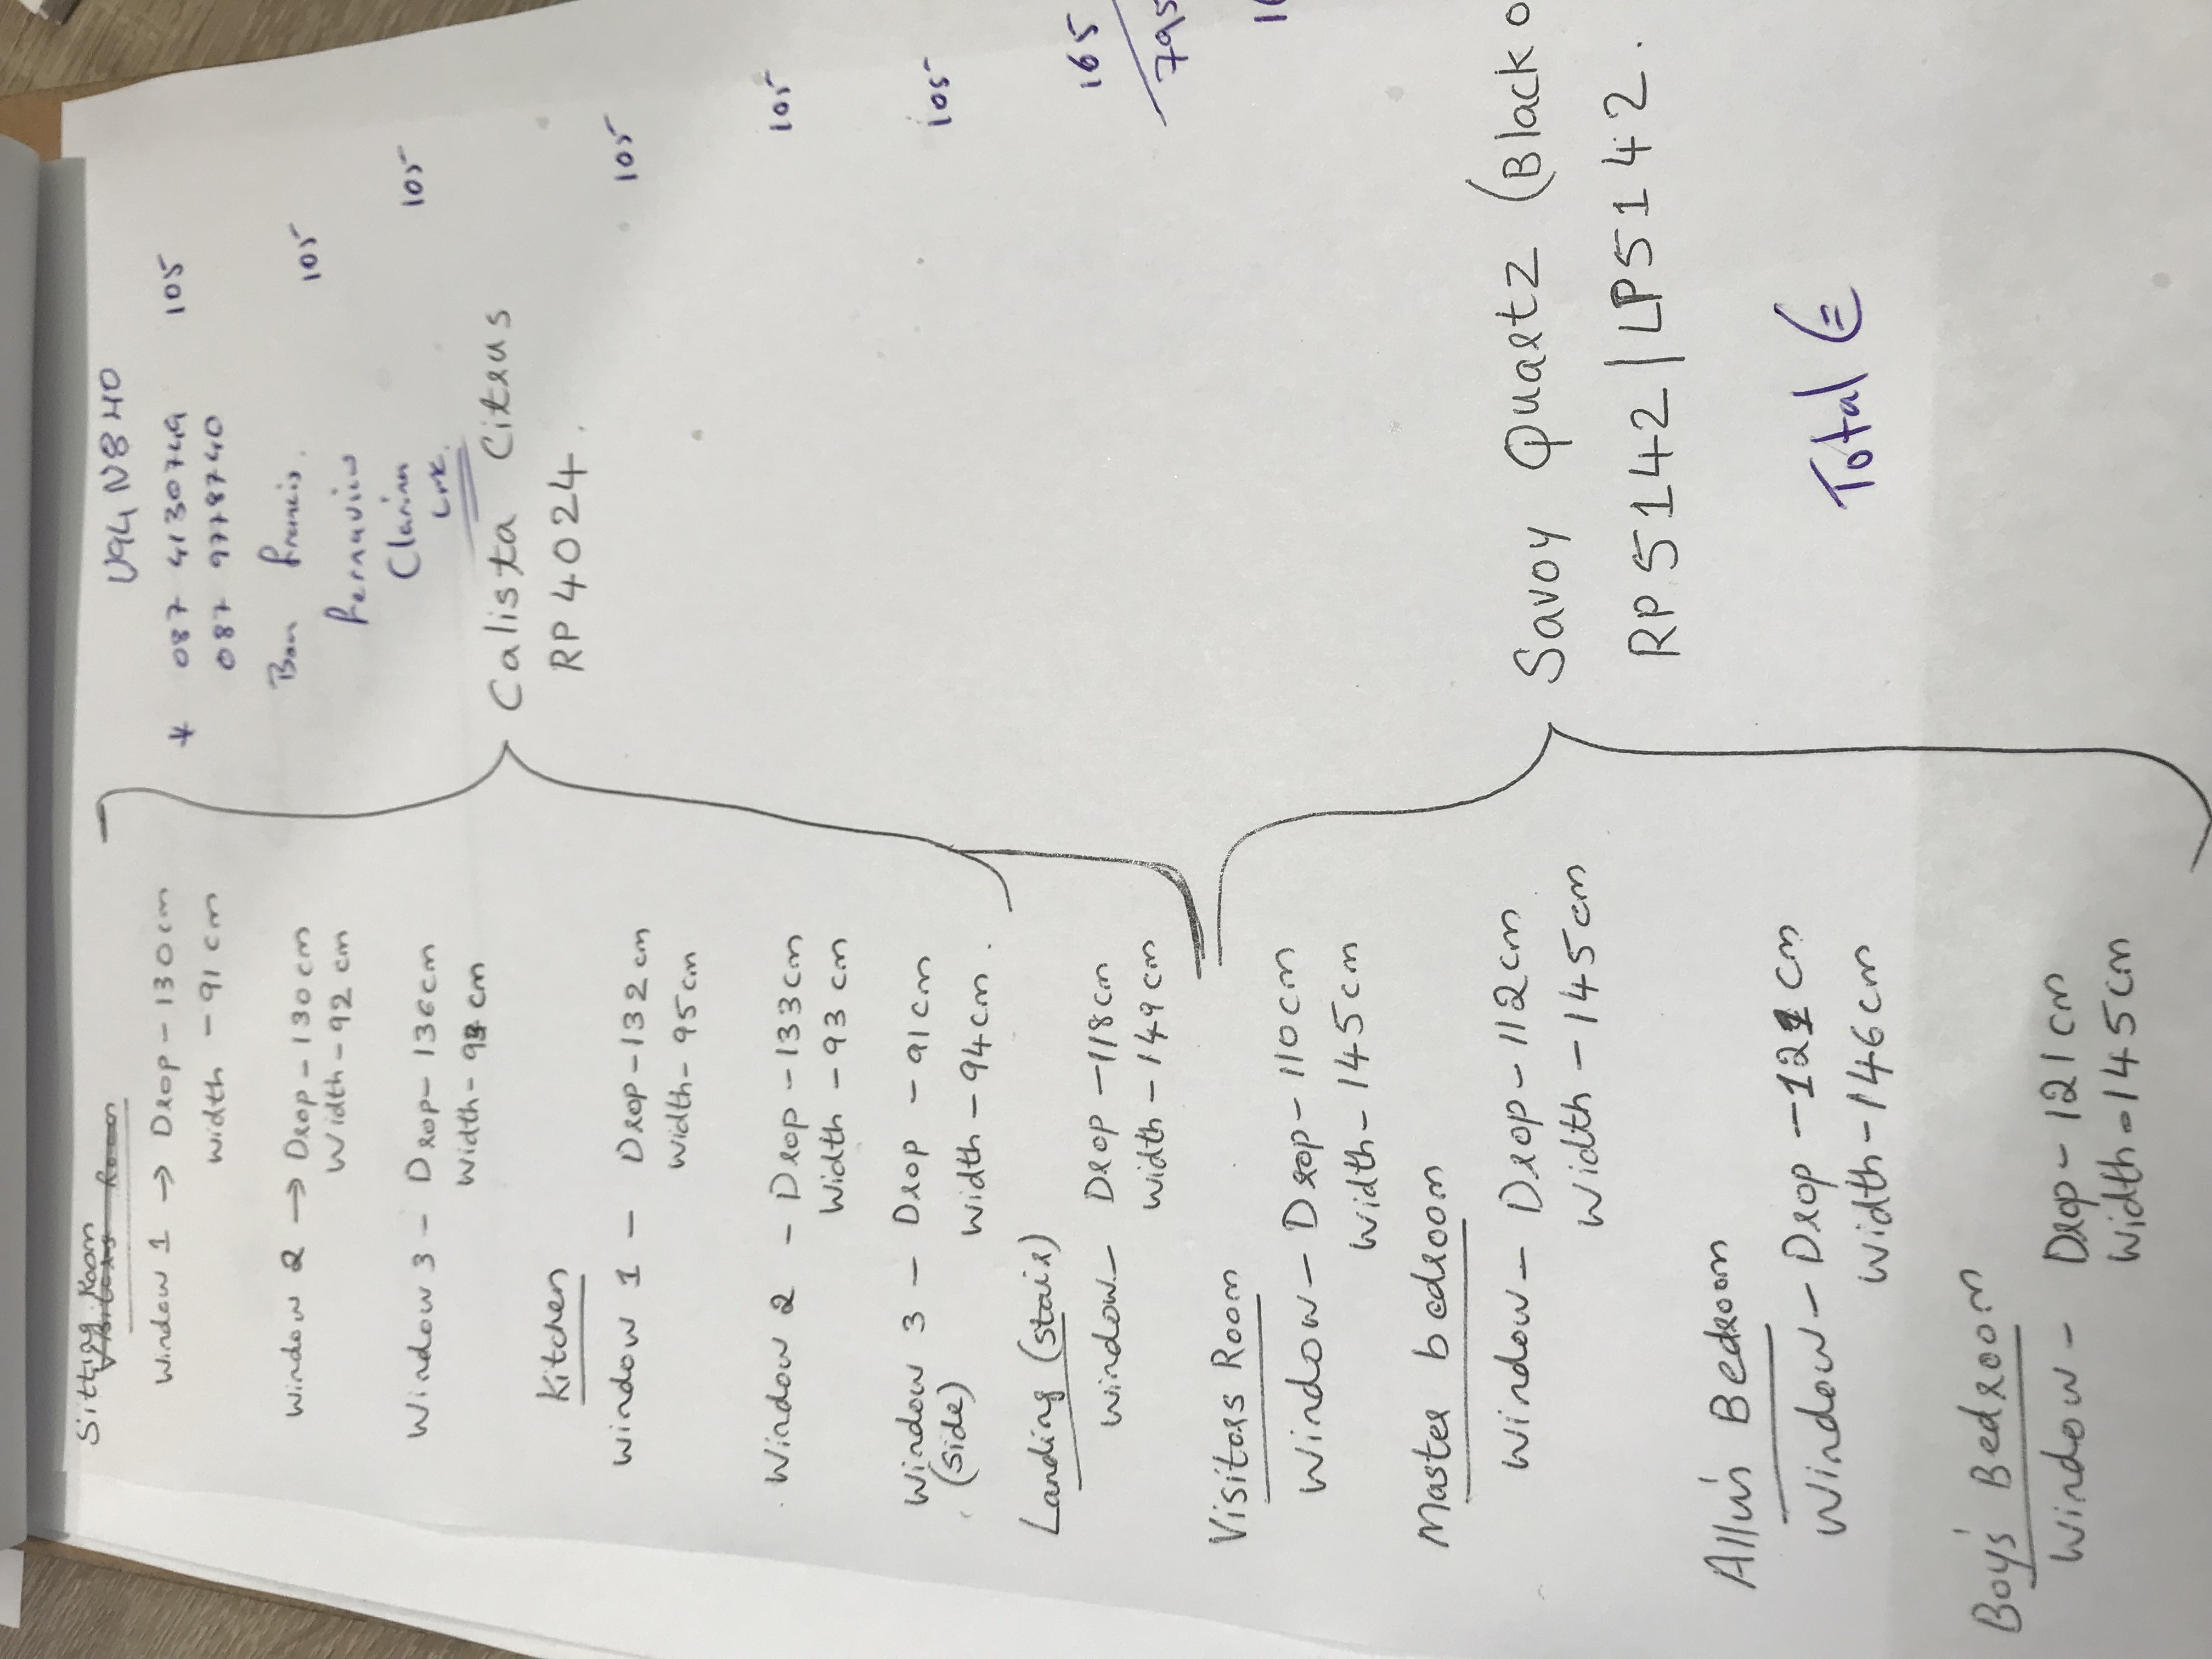 Sitting Room
Visitors Room
Window 1 → Drop - 130cm
Width - 91cm
Window 2 → Drop - 130cm
Width - 92 cm
Window 3 - Drop - 136cm
Width - cm
Kitchen
Window 1 - Drop - 132cm
Width - 95cm
Window 2 - Drop - 133cm
Width - 93 cm
Window 3 - Drop - 91cm
(side) Width - 94cm.
Landing (stair)
Window - Drop - 118cm
Width - 149cm
Visitors Room
Window - Drop - 110cm
Width - 145cm
Master bedroom
Window - Drop - 112cm
Width - 145cm
Allu's Bedroom
Window - Drop - 121cm
Width - 146cm
Boy's Bedroom
Window - Drop - 121cm
Width - 145cm
V94 N8H0
087 4130749 105
087 9778740
105
105
Calista Citrus
RP 4024.
105
105
105
165
795
Savoy Quartz (Blacko
RP5142 | LP5142.
Total (=